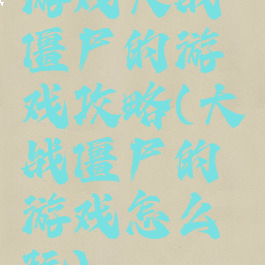 游戏大战
僵尸的游
戏攻略(大
战僵尸的
游戏怎么
玩)